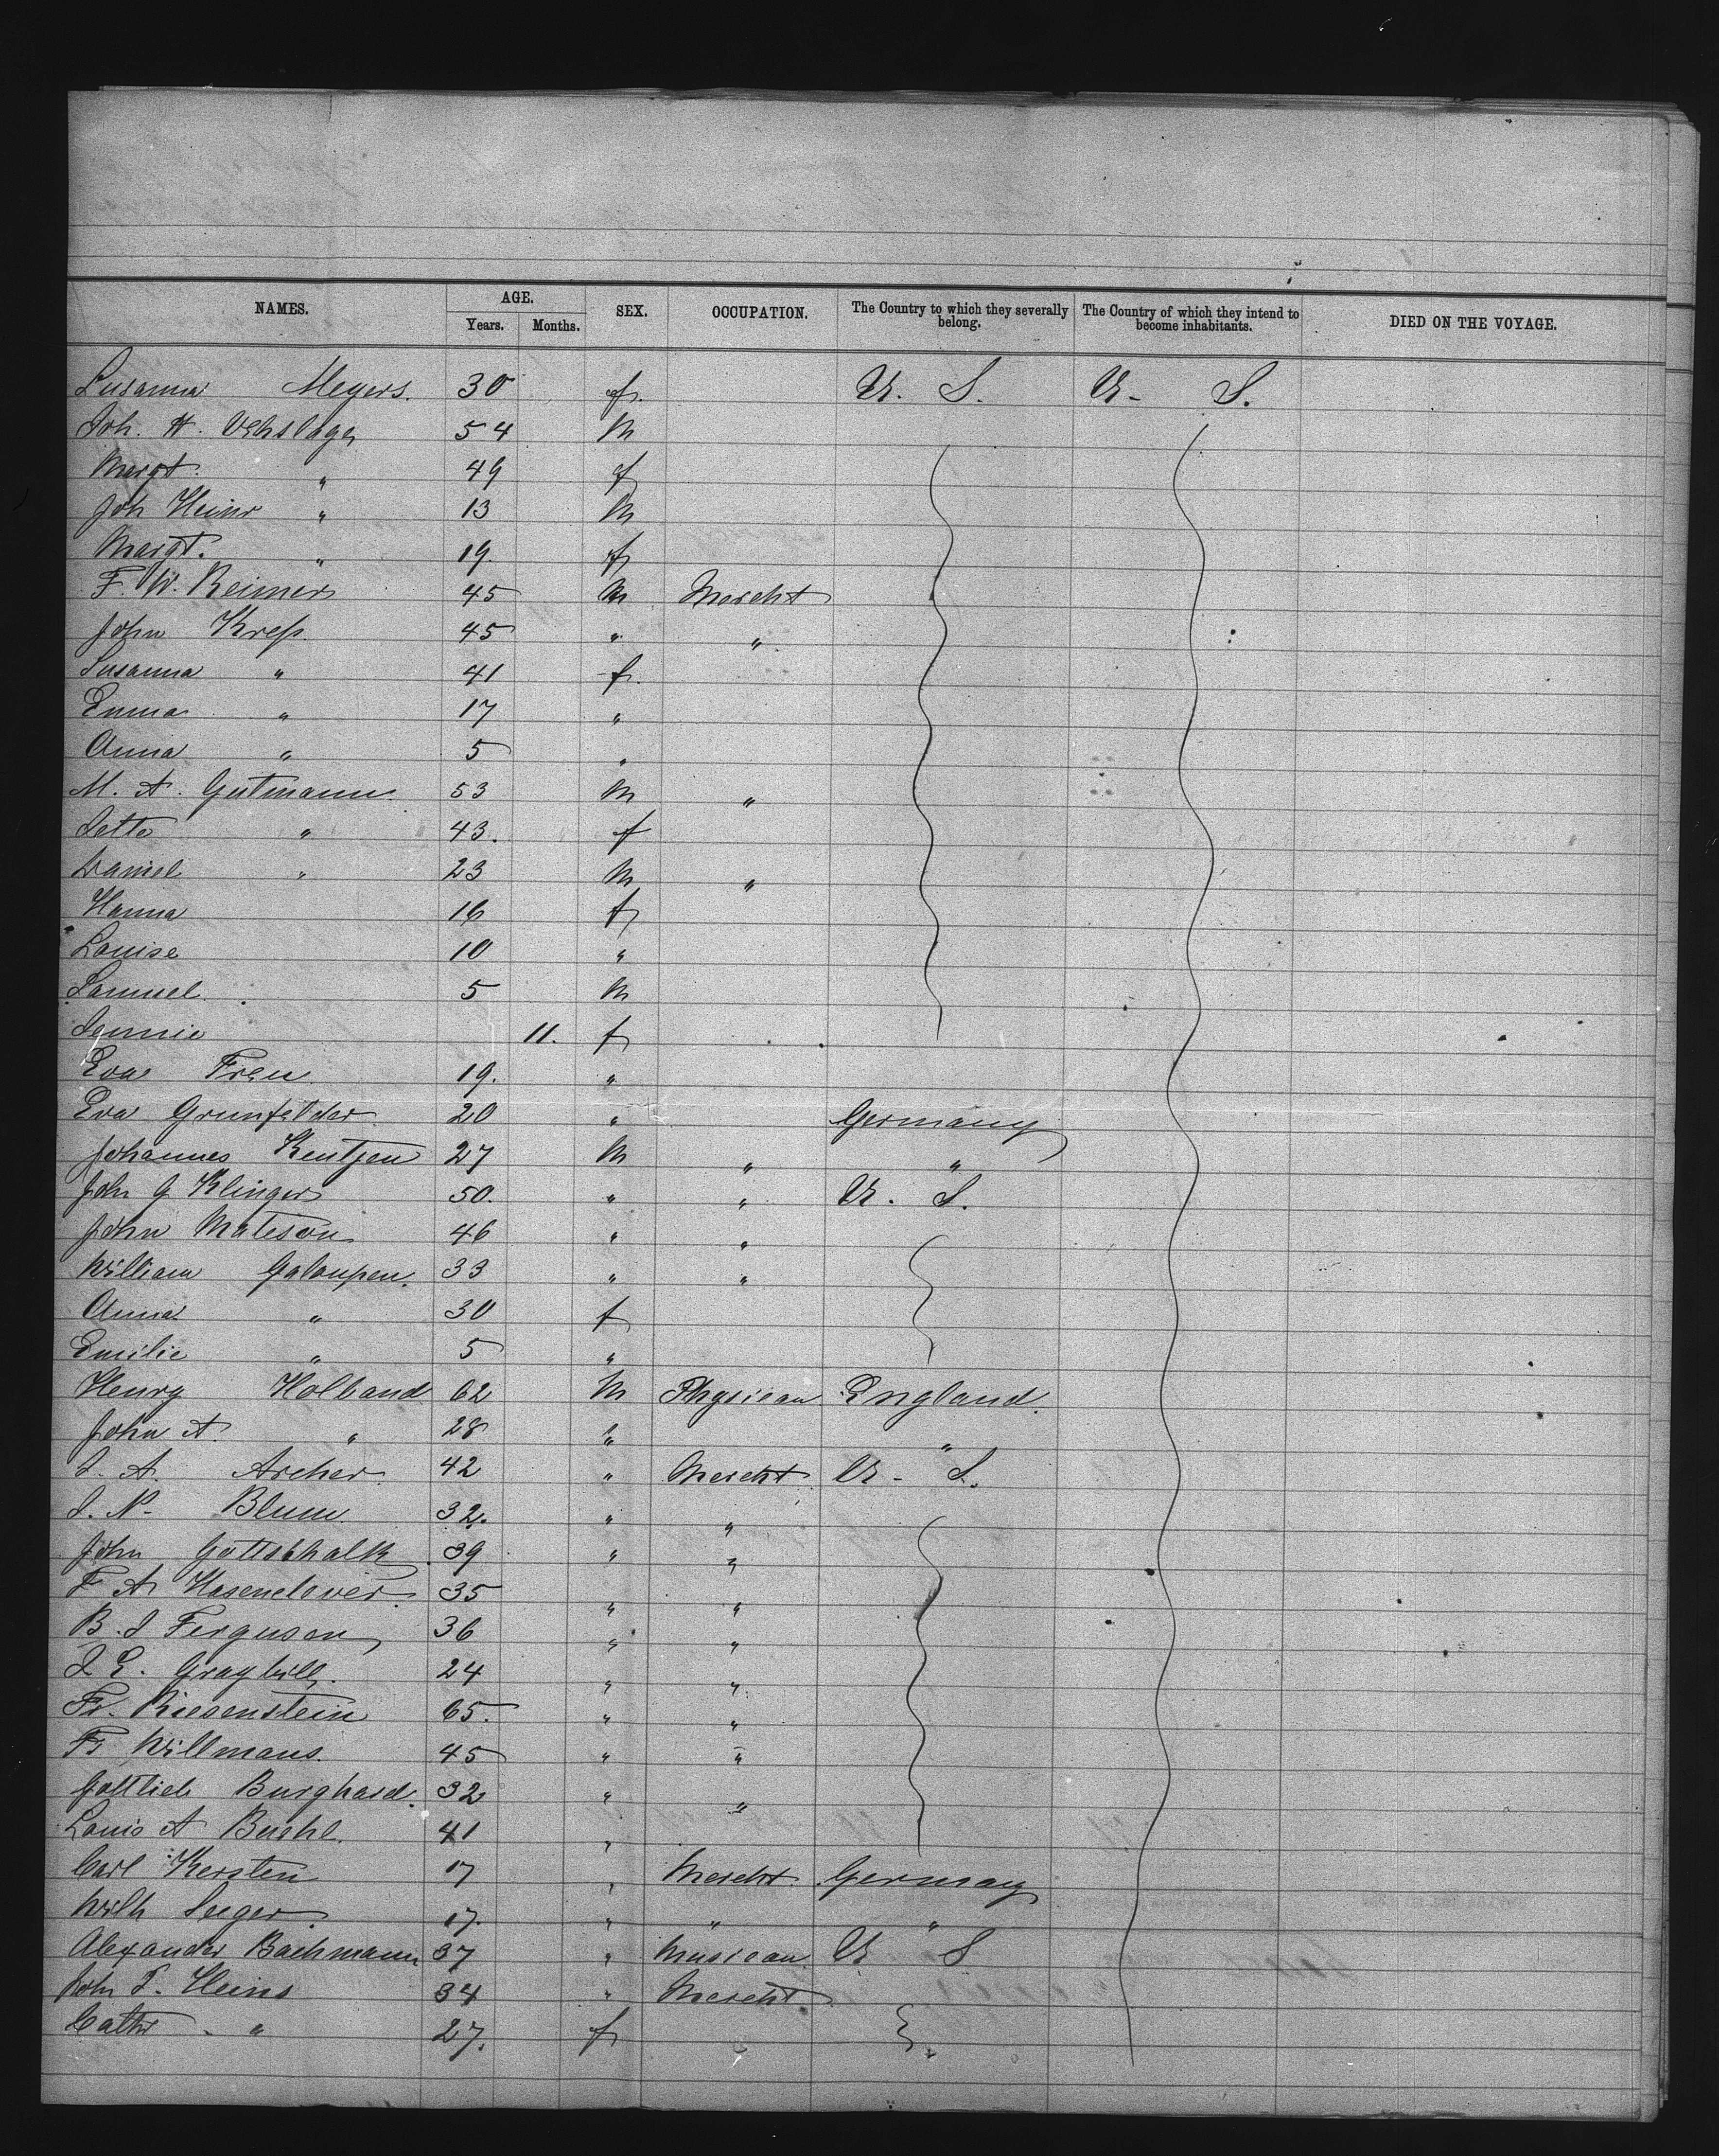 NAMES. AGE. Years. Months. SEX. OCCUPATION. The Country to which they severally belong. The Country of which they intend to become inhabitants. DIED ON THE VOYAGE.
Susanna Meyers. 30 f. U. S. U - S.
Joh. H. Vehslage 54 M
Margt. " 49 f
Joh Heinr " 13 M
Margt. " 19. f
F. W. Reimer 45 M Mercht
John Kress 45 " "
Susanna " 41 f.
Emma " 17 "
Anna " 5 "
M. A. Gutmann 53 M "
Jette " 43. f
Daniel " 23 M "
Hanna 16 f
Louise 10 "
Samuel 5 M
Jennie 11. f
Eva 19. "
Eva Grunfelder 20 " Germany
Johannes 27 M " "
Joh G Klinger 50. " " U. S.
John Mateson 46 " "
William 33 " "
Anna " 30 f
Emilie " 5 "
Henry Holland 62 M Physican England.
John A. " 28 " "
A. Archer 42 " Mercht U - S.
N. Blum 32. " "
John Gottschalk 39 " "
F A Hasenclever 35 " "
B. Ferguson 36 " "
E. Graybill. 24 " "
Fr. Riesenstein 65. " "
Fr Willmans. 45 " "
Gottlieb Burghard. 32 " "
Louis A Buehl. 41 "
Carl Kersten 17 " Mercht Germany
Wilh Seeger. 17. " " "
Alexander Bachmann 37 " Musican U S
John Heins 34 " Mercht
Cath " 27. f